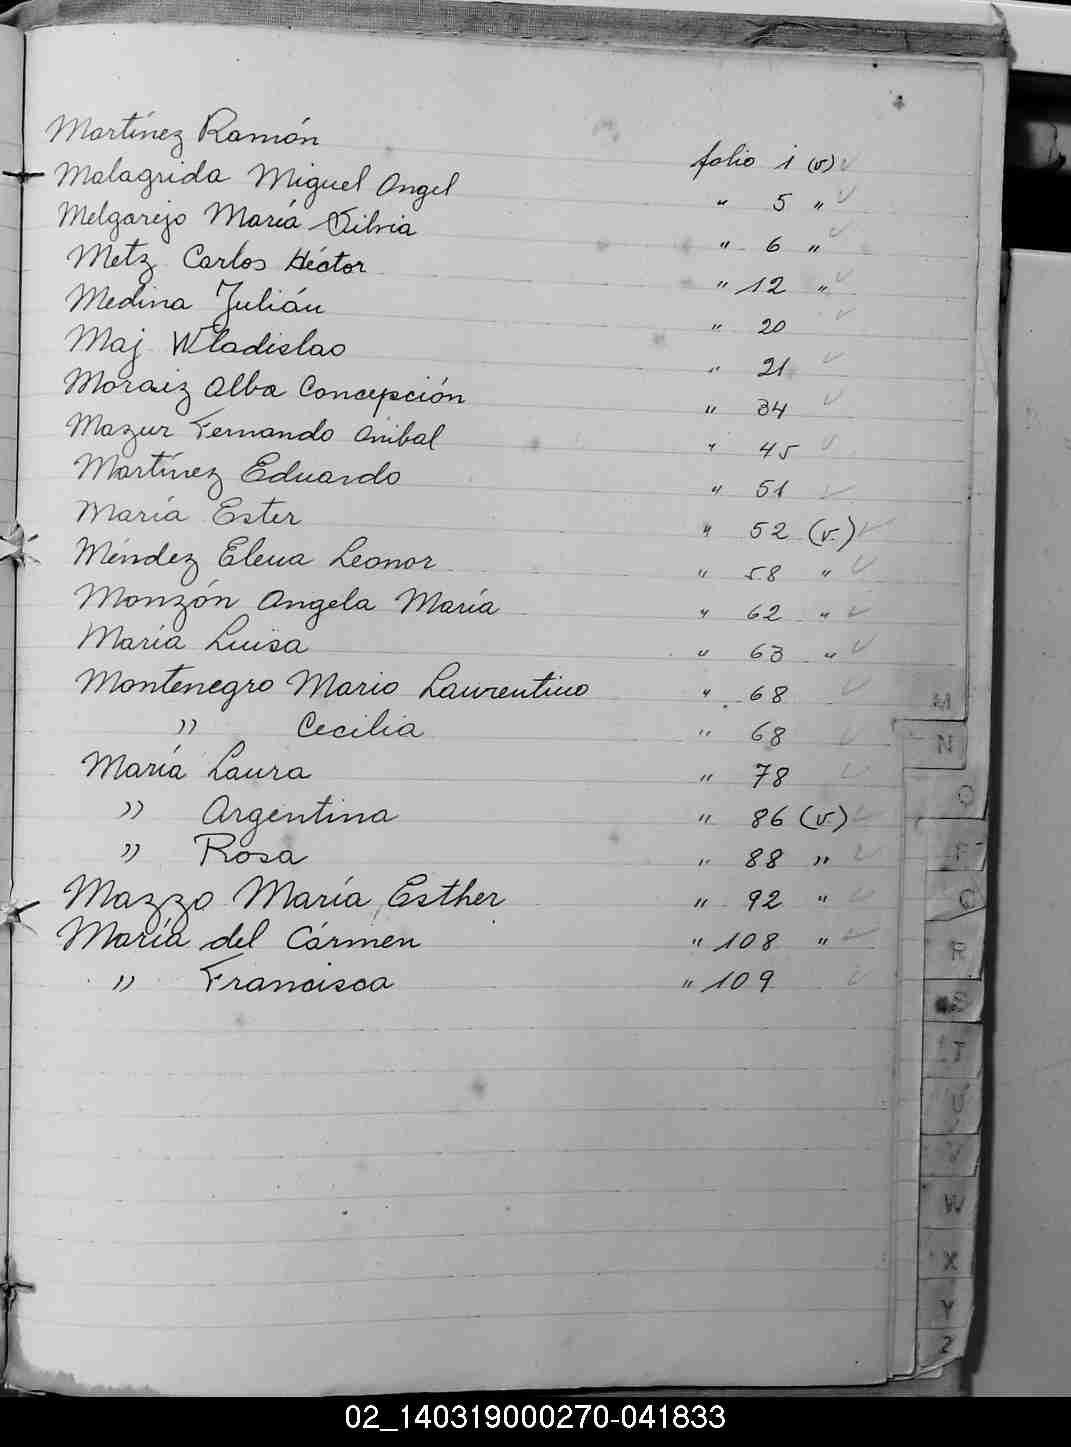 Martínez Ramón folio 1 (v)
Malagrida Miguel Angel " 5 "
Melgarejo María Silvia " 6 "
Metz Carlos Héctor " 12 "
Medina Julián " 20
Maj Wladislao " 21
Moraiz Alba Concepción " 34
Mazur Fernando Anibal " 45
Martínez Eduardo " 51
María Ester " 52 (v.)
Méndez Elena Leonor " 58 "
Monzón Angela María " 62 "
María Luisa " 63 "
Montenegro Mario Laurentino " 68
" Cecilia " 68
María Laura " 78
" Argentina " 86 (v.)
" Rosa " 88 "
Mazzo María Esther " 92 "
María del Cármen " 108 "
" Francisca " 109
M
N
O
P
Q
R
S
T
U
V
W
X
Y
Z
02_140319000270-041833